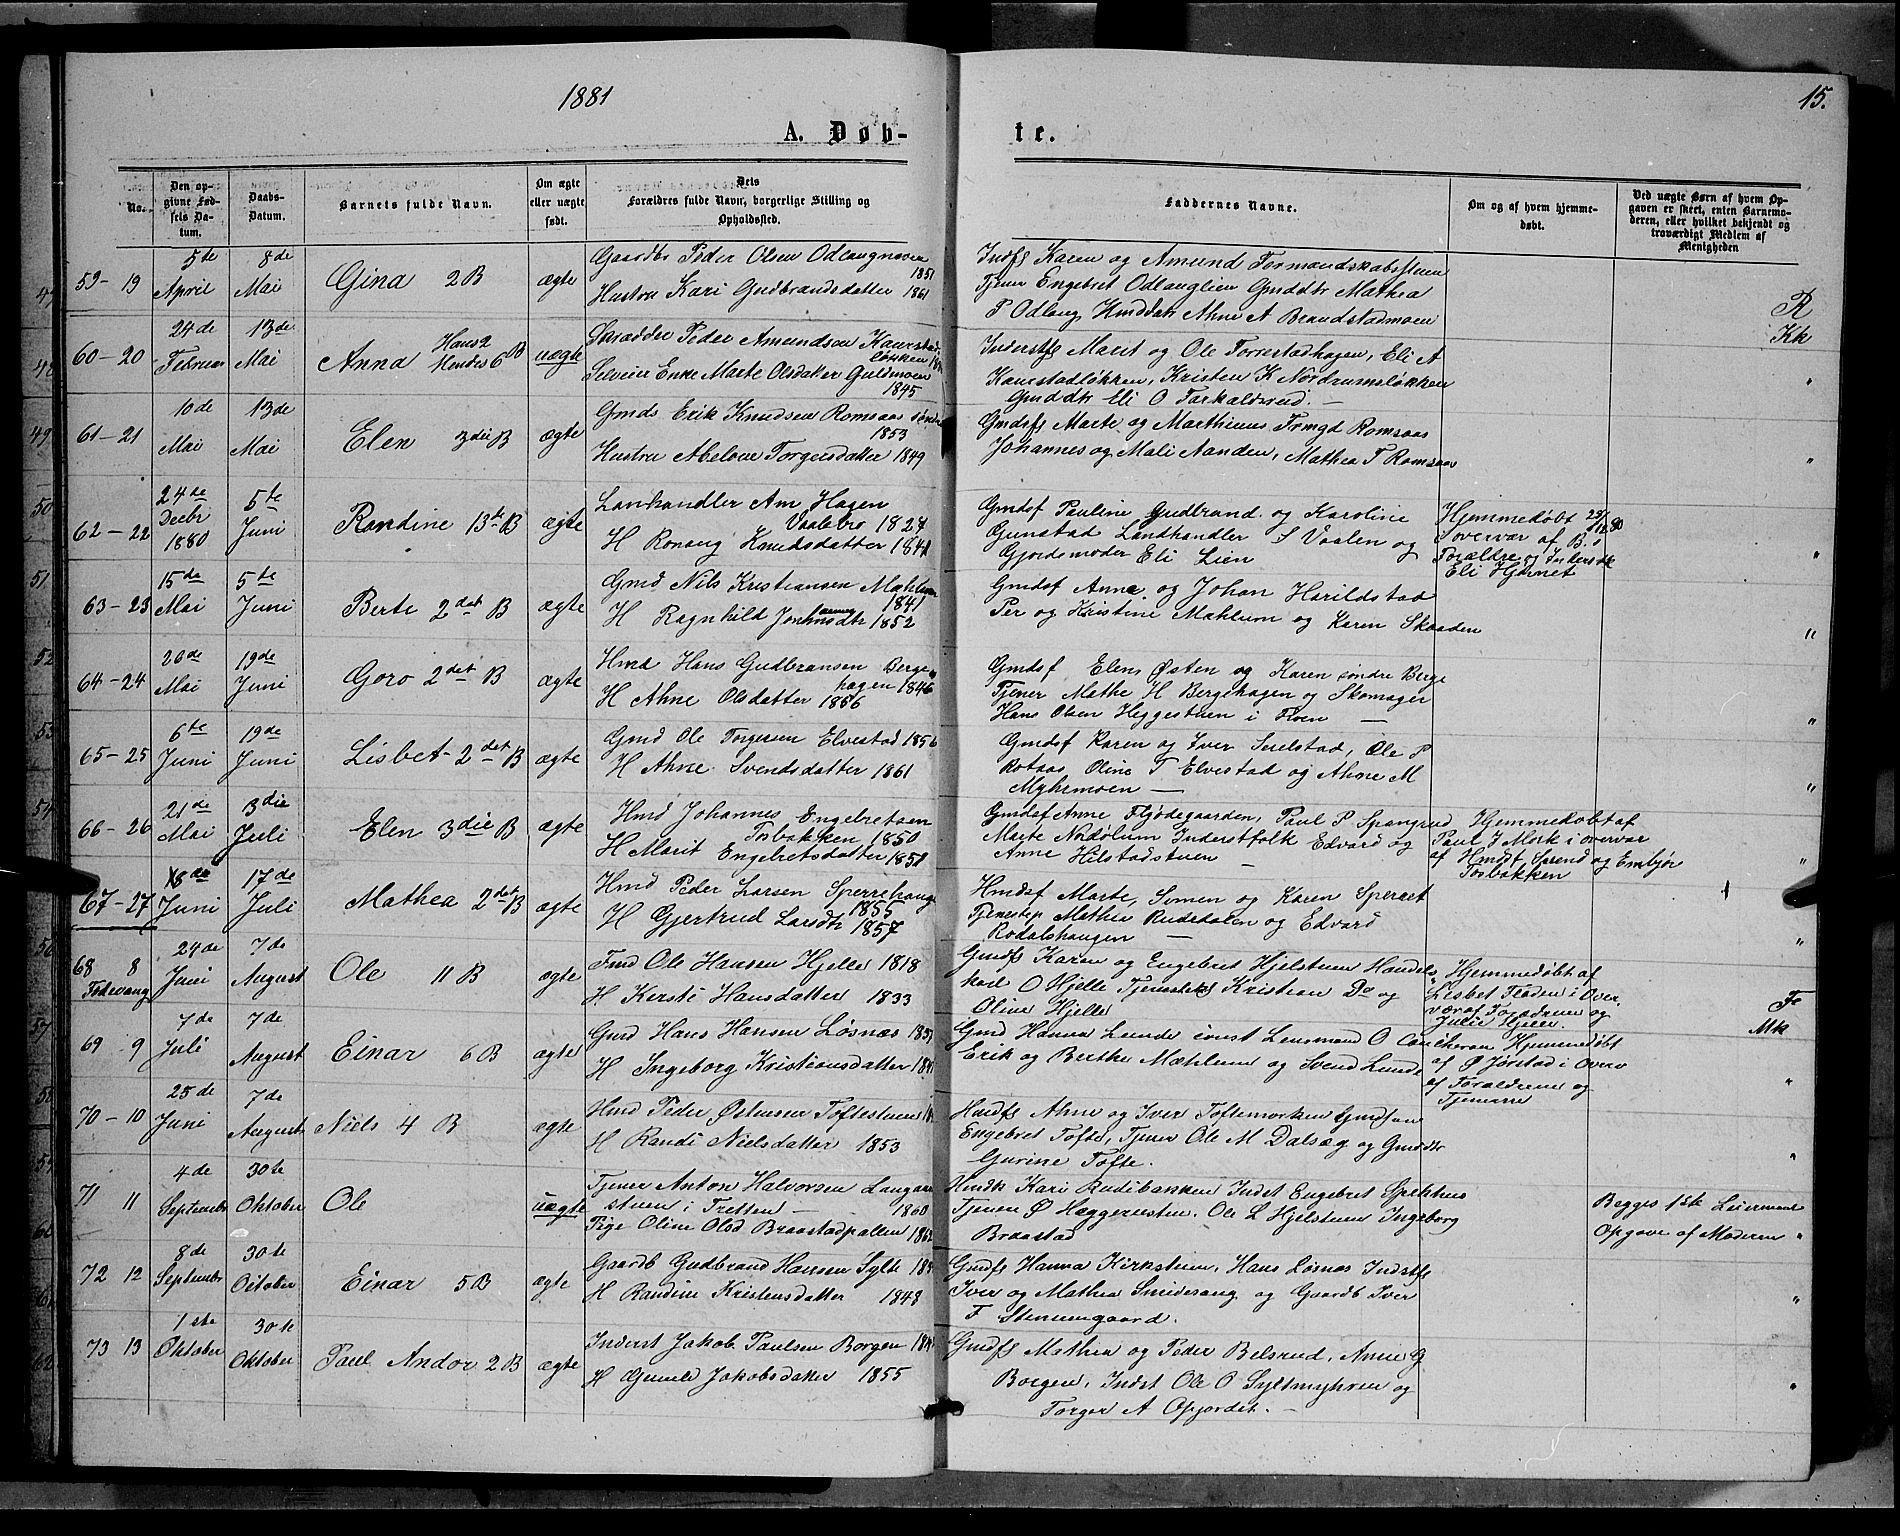 1881
15.
A. Døb-
te.
No.
Den op-
givne Fød-
sels Da-
tum.
Daabs-
Datum.
Barnets fulde Navn.
Om ægte
eller uægte
født.
Dets
Forældres fulde Navn, borgerlige Stilling og
Opholdssted.
Faddernes Navne.
Om og af hvem hjemme-
døbt.
Ved uægte Børn af hvem Op-
gaven er skeet, enten Barnemo-
deren, eller hvilket bekjendt og
troværdigt Medlem af
Menigheden
59-19
5te
April
8de
Mai
Gina 2 B
ægte
Gaardbr Peder Olsen Odlaugmoen
1851
Hustru Kari Gudbrandsdatter 1861
Indfs Karen og Amund Formandskabsstuen
Tjener Engebret Odlauglien Gmddtr Mathea
P Odlaug Hmddatr Ahne A Brandstadmoen
R
60-20
24de
Februar
13de
Mai
Anna Hans 2
Hendes 6 B
uægte
Skrædder Peder Amundsen Kaarstad
løkken
Selveier Enke Marte Olsdatter Guldmoen
1845
Inderstfs Marit og Ole Torrestadhagen, Eli A
Kaarstadløkken, Kristen K Nordrumsløkken
Gmddtr Eli O Torkaldsrud.
Kk
"
61-21
10de
Mai
13de
Mai
Elen 3die B
ægte
Gmds Erik Knudsen Romsaas søndre
1853
Hustru Abelone Torgersdatter 1849
Gmdsfs Marte og Marthinus Frmgd Romsaas
Johannes og Mali Aanden, Mathea T Romsaas
"
62-22
24de
Decbr
1880
5te
Juni
Randine 13de B
ægte
Lanhandler Am Hagen
Vaalebro 1824
H Ronaug Knudsdatter 1841
Gmdsf Pauline Gudbrand og Karoline
Gunstad Landhandler S Vaalen og
Gjordemoder Eli Lien
Hjemmedøbt
overvær af B.
Forældre og
Eli Hjernet
"
63-23
15de
Mai
5te
Juni
Berte 2det B
ægte
Gmd Nils Kristiansen Mæhlum
1841
H Ragnhild 1852
Gmdsf Anne og Johan Harildstad
Per og Kristine Mahlum og Karen Skaaden
"
64-24
20de
Mai
19de
Juni
Goro 2det B
ægte
Hmd Hans Gudbransen Berge
hagen 1846
H Ahne Olsdatter 1856
Gmdsf Elen Østen og Karen søndre Berge
Tjener Mathe H Bergehagen og Skomager
Hans Olsen Heggestuen i Froen
"
65-25
6te
Juni
19de
Juni
Lisbet 2det B
ægte
Gmd Ole Torgersen Elvestad 1856
H Ahne Svendsdatter 1861
Gmdsf Karen og Iver Serelstad, Ole P
Rotaas Oline T Elvestad og Ahne M
Myhrmoen
"
66-26
21de
Mai
3die
Juli
Elen 3die B
ægte
Hmd Johannes Engebretsen
Fosbakken 1850
H Marit Engebretsdatter 1851
Gmdsf Anne Fløidegaarden, Paul P Spangrud
Marte Nordølum Inderstfolk Edvard og
Anne Hilstadstuen
Hjemmedøbt af
Paul J Mork i overvær
af Hmdt Svend og Embjør
Fosbakken
"
67-27
18de
Juni
17de
Juli
Mathea 2det B
ægte
Hmd Peder Larsen Sperrehaug
1855
H Gjertrud Larsdtr 1857
Hmdsf Marte, Simen og Karen Speraet
Tjenestep Mathea Rudsdalen og Edvard
Rodalshaugen
"
68 8
Fodevang
24de
Juni
7de
August
Ole 11 B
ægte
Fmd Ole Hansen Hjelle 1818
H Kersti Hansdatter 1833
Gmdfs Karen og Engebret Hjelstuen Handels
karl O Hjelle Tjenestek Kristian Do og
Oline Hjelle
Hjemmedøbt af
Lisbet Floden i Over.
vær af Forældrene og
Julie Hjelle.
Fr
69 9
7de
Juli
7de
August
Einar 6 B
ægte
Gmd Hans Hansen Løsnæs
H Ingeborg Kristiansdatter
Gmd Hanna Lunde Lensmand O
Erik og Berthe Mæhlum og Svend Lunde
Hjemmedøbt
af Ø Jørstad i Overv
af Forældrene og
Tjenerne
Mk
"
70-10
25de
Juni
7de
August
Niels 4 B
ægte
Hmd Peder Østensen Toftestuen
H Randi Nielsdatter 1853
Hmdfs Ahne og Iver Toftemorken
Engebret Tofte, Tjener Ole M Dalsæg og Gmddtr
Gurine Tofte.
"
71 11
4de
Septembr
30te
Oktober
Ole
uægte
Tjener Anton Halvorsen
stuen i Tretten 1860
Pige Oline Olsd Braastadpallen 1862
Hmdk Kari Rudibakken Indst Engebret
Tjener Ø Heggerusten. Ole L Hjelstuen Ingeborg
Braastad
Begges 1ste Leiermaal
Opgave af Moderen "
72 12
8de
Septembr
30te
October
Einar 5 B
ægte
Gaardb Gudbrand Hansen Sylte
H Randine Kristensdatter 1848
Gmdfs Hanna Kirkstuen, Hans Løsnæs Indstfs
Iver og Mathea Smidesang og Gaardb Iver
F Stenumgaard.
"
73 13
1ste
Oktober
30te
Oktober
Paul Andor 2 B
ægte
Inderst Jakob Paulsen Borgen
H Gunild Jakobsdatter 1855
Gmdfs Mathea og Peder Belsrud, Anne G
Borgen, Indst Ole O Syltmyhren og
Torger A Opjordet.
"